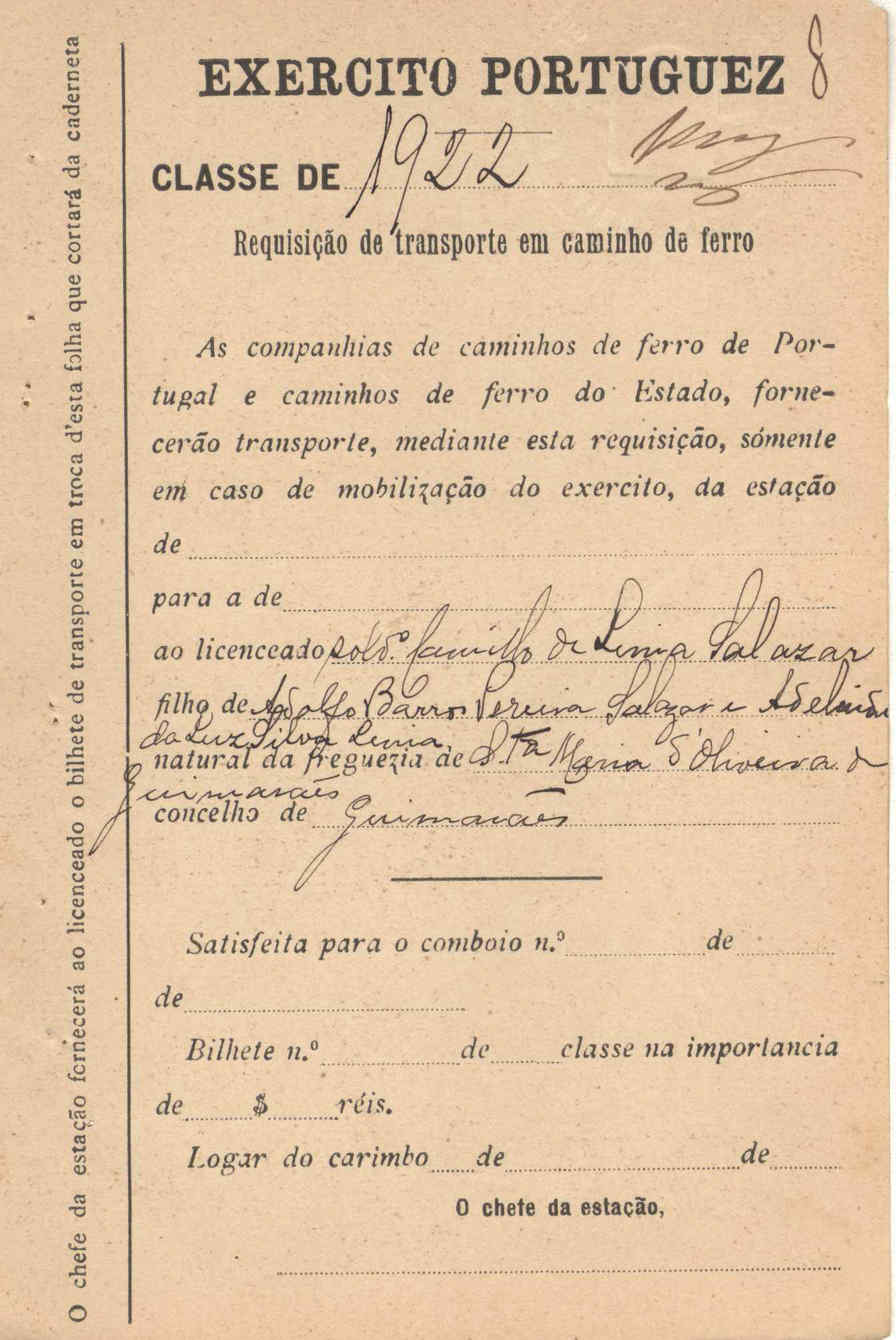 EXERCITO PORTUGUEZ 8
CLASSE DE 1922
Requisição de transporte em caminho de ferro
As companhias de caminhos de ferro de Por-
tugal e caminhos de ferro do Estado, forne-
cerão transporte, mediante esta requisição, sómente
em caso de mobilização do exercito, da estação
de
para a de
ao licenceado sold.º Camillo de Lima Salazar
filho de Adolfo Barros Pereira Salazar e Adelaide
da Luz Silva Lima,
natural da freguezia de Sta Maria d'Oliveira de
Guimarães
concelho de Guimarães
Satisfeita para o comboio n.º de
de
Bilhete n.º de classe na importancia
de $ réis.
Logar do carimbo de de
O chefe da estação,
O chefe da estação fornecerá ao licenceado o bilhete de transporte em troca d'esta folha que cortará da caderneta